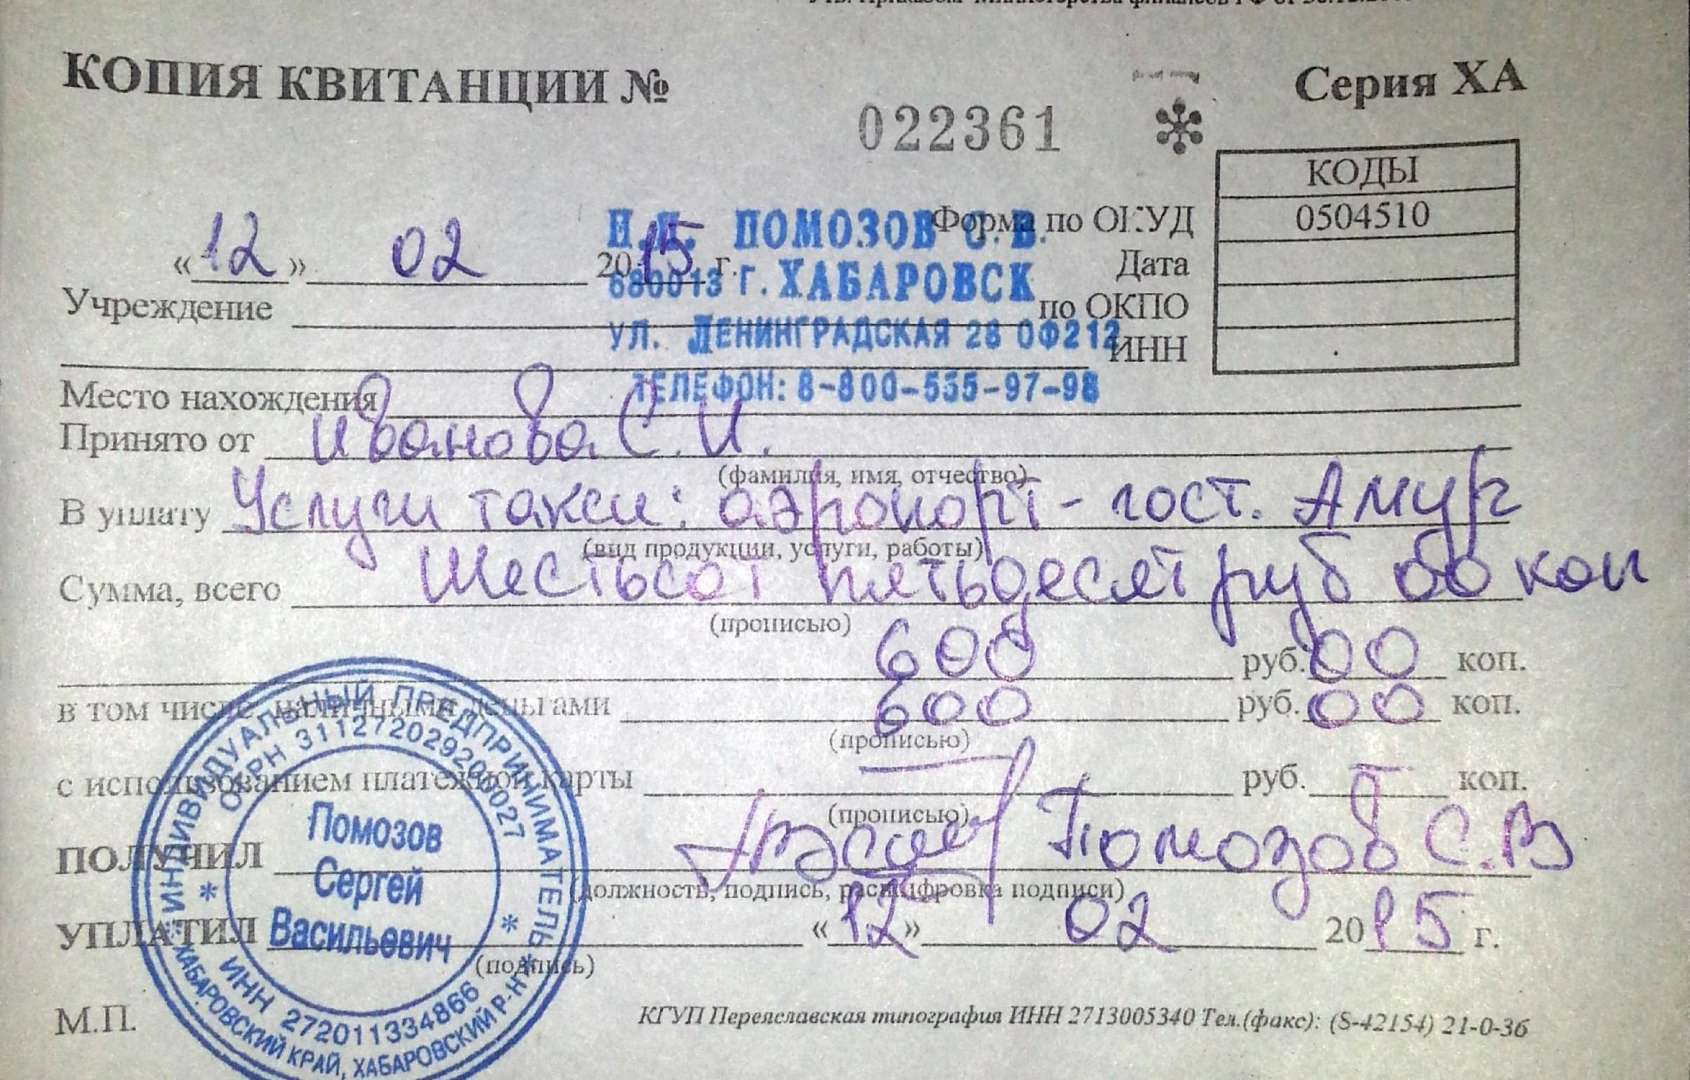 КОПИЯ КВИТАНЦИИ №
022361
Серия ХА
КОДЫ
Форма по ОКУД 0504510
«12» 02 2015 г.
И.П. ПОМОЗОВ С.В.
680013 г. ХАБАРОВСК
УЛ. ЛЕНИНГРАДСКАЯ 28 ОФ212
ТЕЛЕФОН: 8-800-555-97-98
Дата
Учреждение
по ОКПО
ИНН
Место нахождения
Принято от Иванова С.И.
(фамилия, имя, отчество)
В уплату Услуги такси: аэропорт - гост. Амур
(вид продукции, услуги, работы)
Сумма, всего Шестьсот пятьдесят руб 00 коп
(прописью)
600 руб. 00 коп.
в том числе, наличными деньгами 600 руб. 00 коп.
(прописью)
с использованием платежной карты — руб. — коп.
(прописью)
ПОЛУЧИЛ Помозов С.В
(должность, подпись, расшифровка подписи)
УПЛАТИЛ «12» 02 2015 г.
(подпись)
М.П.
КГУП Переяславская типография ИНН 2713005340 Тел.(факс): (S-42154) 21-0-36
ИНДИВИДУАЛЬНЫЙ ПРЕДПРИНИМАТЕЛЬ
ОГРН 311272029200027
Помозов
Сергей
Васильевич
ИНН 272011334866
ХАБАРОВСКИЙ КРАЙ, ХАБАРОВСКИЙ Р-Н